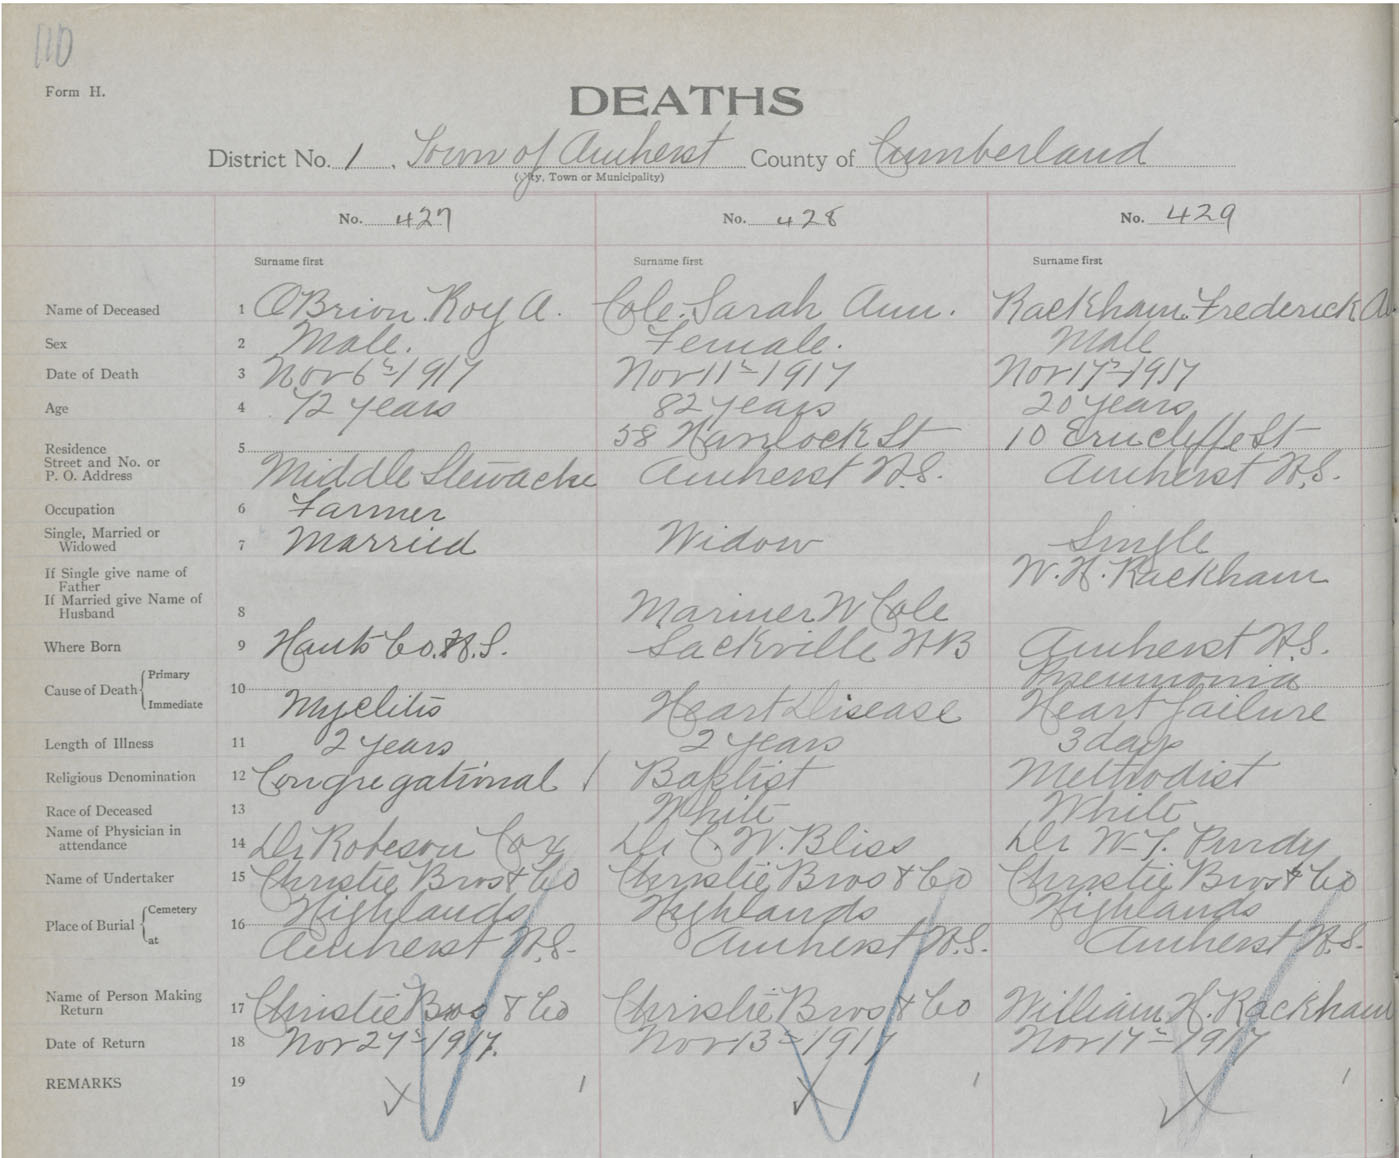 110
Form H.
DEATHS
District No. 1. Town of Amherst County of Cumberland
(City, Town or Municipality)
No. 427 No. 428 No. 429
Surname first Surname first Surname first
Name of Deceased 1 O'Brion. Roy A. Cole. Sarah Ann. Rackham. Frederick
Sex 2 Male. Female. Male
Date of Death 3 Nov 6th 1917 Nov 11th 1917 Nov 17th 1917
Age 4 72 years 82 years 20 years
58 Hamlock St 10 Erncliffe St
Residence
Street and No. or
P. O. Address
5 Middle Stewacke Amherst N.S. Amherst N.S.
Occupation 6 Farmer
Single, Married or
Widowed
7 Married Widow Single
If Single give name of
Father
W. H. Rackham
If Married give Name of
Husband
8 Mariner W Cole
Where Born 9 Hants Co. N.S. Sackville NB Amherst N.S.
Cause of Death Primary 10 Pneumonia
Immediate Myelitis Heart Disease Heart failure
Length of Illness 11 2 years 2 years 3 days
Religious Denomination 12 Congregational Baptist Methodist
Race of Deceased 13 White White
Name of Physician in
attendance
14 Dr Robeson Cox Dr C. W. Bliss Dr W. T. Purdy
Name of Undertaker 15 Christie Bros & Co Christie Bros & Co Christie Bros & Co
Place of Burial Cemetery 16 Highlands Highlands Highlands
at Amherst N.S. Amherst N.S. Amherst N.S.
Name of Person Making
Return
17 Christie Bros & Co Christie Bros & Co William H. Rackham
Date of Return 18 Nov 27th 1917. Nov 13th 1917 Nov 17th 1917
REMARKS 19 1 1 1